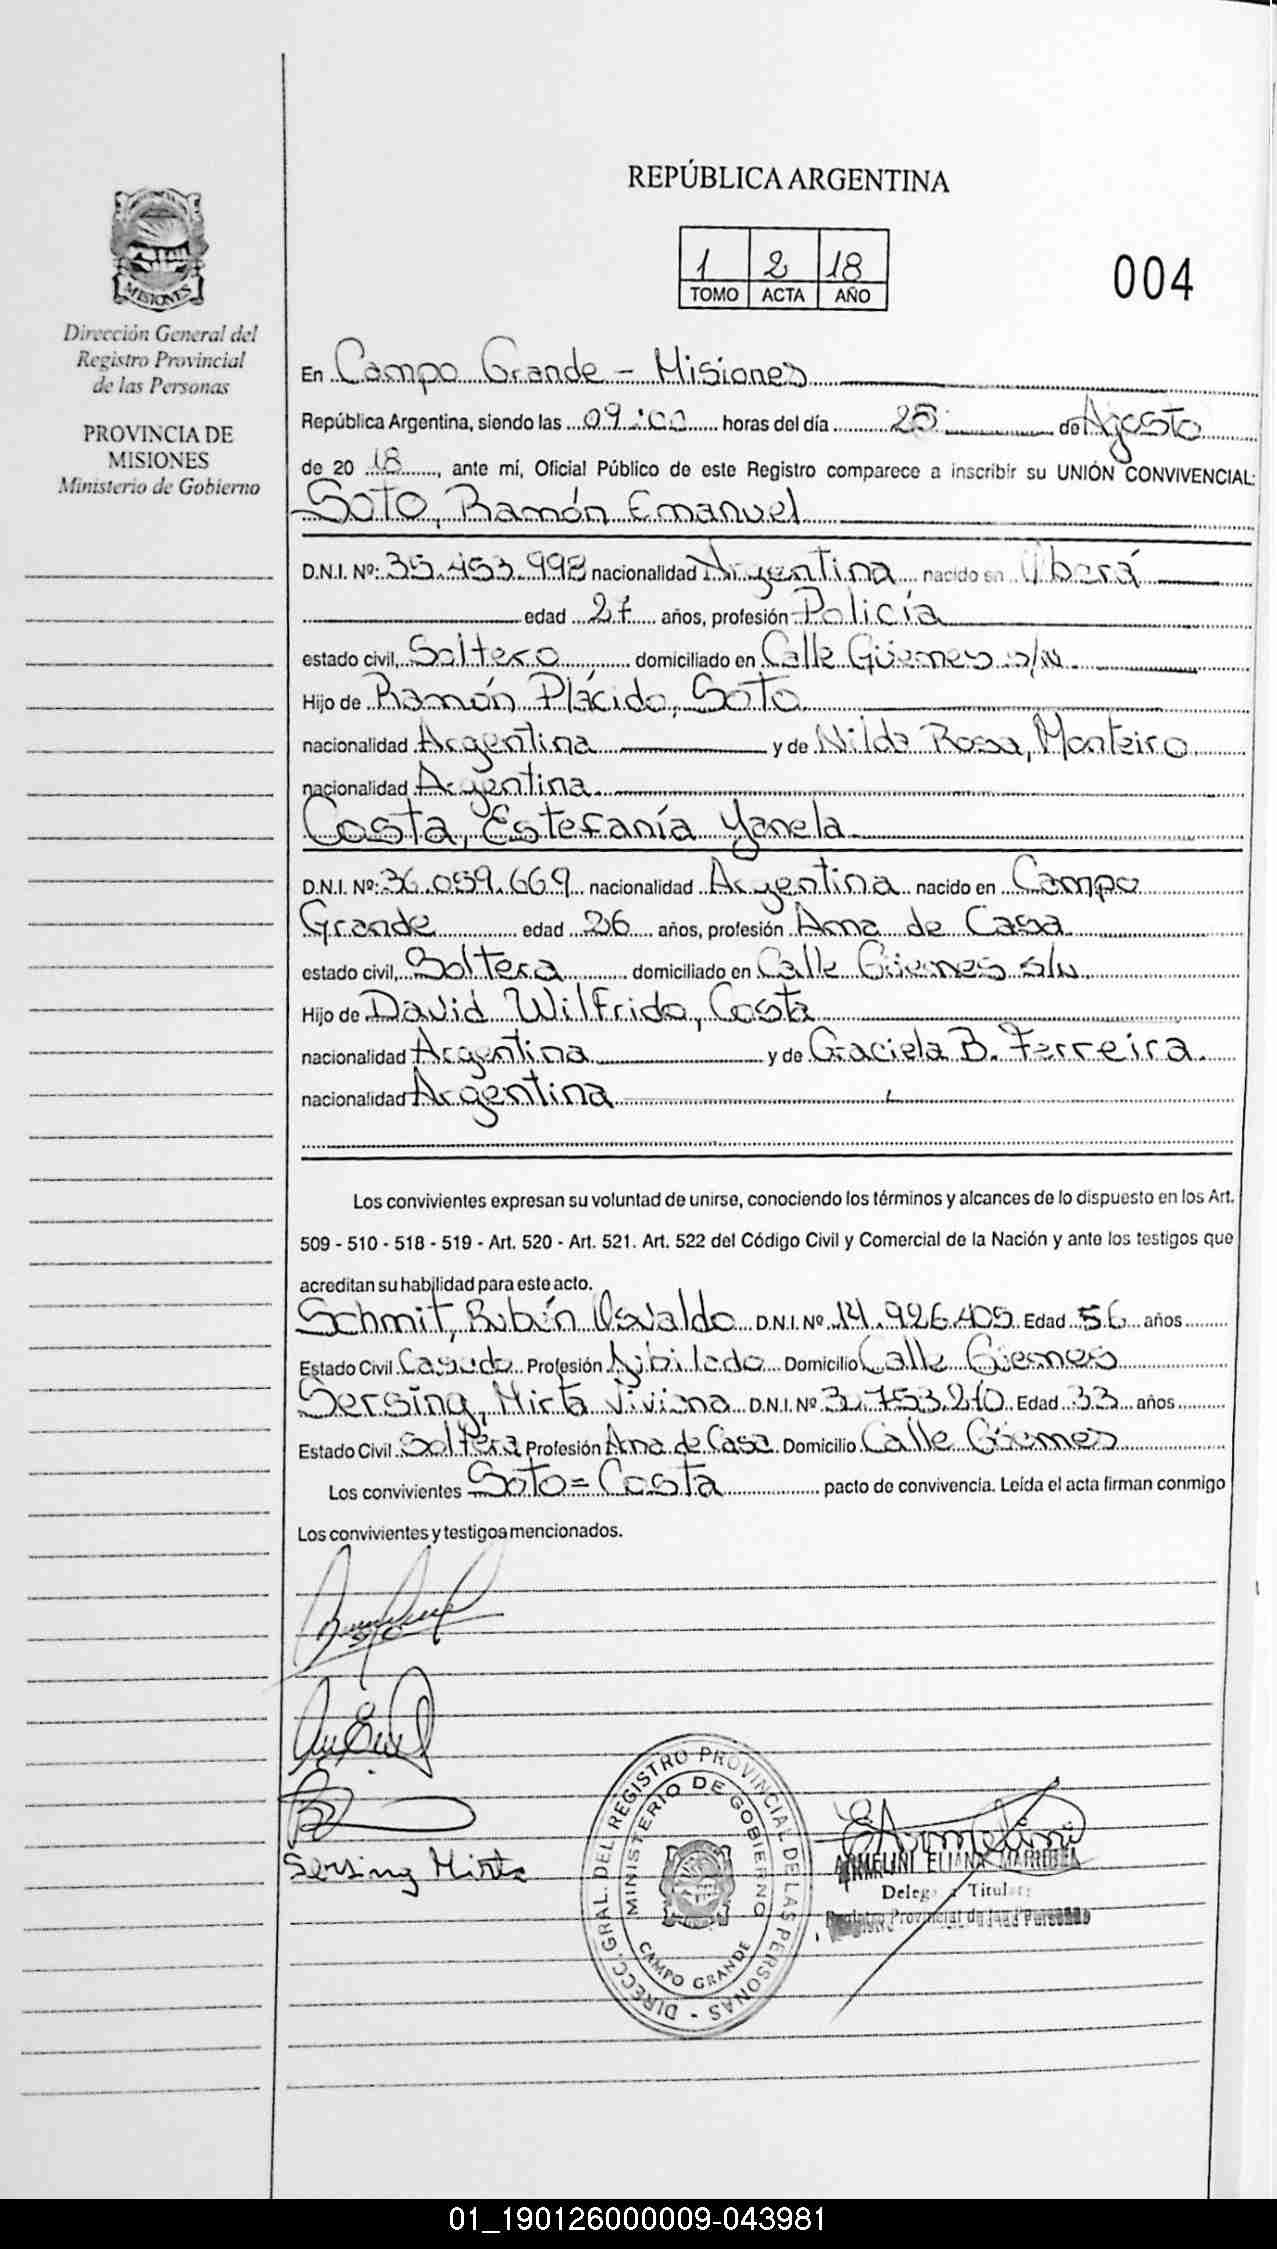 REPÚBLICA ARGENTINA
1 2 18
TOMO ACTA AÑO
004
MISIONES
Dirección General del
Registro Provincial
de las Personas
PROVINCIA DE
MISIONES
Ministerio de Gobierno
En Campo Grande - Misiones
República Argentina, siendo las 09:00 horas del día de Agosto
de 20 18, ante mí, Oficial Público de este Registro comparece a inscribir su UNIÓN CONVIVENCIAL:
SOTO, Ramón Emanuel
D.N.I. Nº: 35.453.998 nacionalidad Argentina nacido en Oberá
edad 27 años, profesión Policía
estado civil, Soltero domiciliado en Calle Güemes s/n
Hijo de Ramón Plácido, Soto
nacionalidad Argentina y de Nilda Rosa, Monteiro
nacionalidad Argentina
Costa, Estefanía Yanela
D.N.I. Nº: 36.059.669 nacionalidad Argentina nacido en Campo
Grande edad 26 años, profesión Ama de Casa
estado civil, Soltera domiciliado en Calle Güemes s/n
Hijo de David Wilfrido, Costa
nacionalidad Argentina y de Graciela B. Ferreira
nacionalidad Argentina
Los convivientes expresan su voluntad de unirse, conociendo los términos y alcances de lo dispuesto en los Art.
509 - 510 - 518 - 519 - Art. 520 - Art. 521. Art. 522 del Código Civil y Comercial de la Nación y ante los testigos que
acreditan su habilidad para este acto.
Schmit, Rubén Osvaldo D.N.I. Nº 14.926.405 Edad 56 años
Estado Civil Casado Profesión Jubilado Domicilio Calle Güemes
Sersing, Mirta Viviana D.N.I. Nº Edad 33 años
Estado Civil Soltera Profesión Ama de Casa Domicilio Calle Güemes
Los convivientes Soto = Costa pacto de convivencia. Leída el acta firman conmigo
Los convivientes y testigos mencionados.
Sersing Mirta
DIRECC. GRAL. DEL REGISTRO PROVINCIAL DE LAS PERSONAS -
MINISTERIO DE GOBIERNO
CAMPO GRANDE
ARMELINI ELIANA
Titular
Registro Provincial de las Personas
01_190126000009-043981